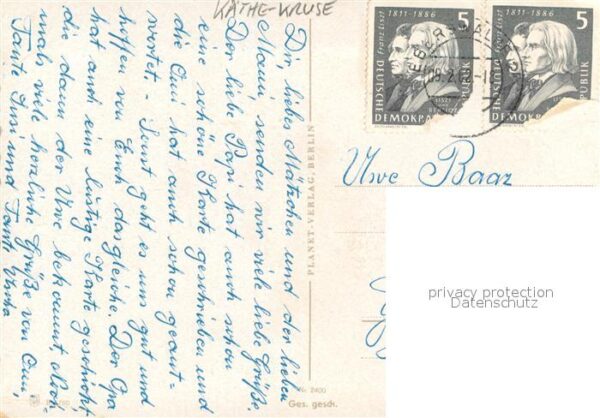 KÄTHE-KRUSE
Dir liebes Mätzchen und der lieben
Mami senden wir viele liebe Grüße.
Der liebe Papi hat auch schon
eine schöne Karte geschrieben und
die Omi hat auch schon geant-
wortet. Sonst geht es uns gut und
hoffen von Euch das gleiche. Der Opa
hat auch eine lustige Karte geschickt
die dann der Uwe bekommt. Noch-
mals viele herzliche Grüße von Omi,
Tante Isi und Tante
PLANET-VERLAG, BERLIN
Franz Liszt
1811-1886
5
LISZT
UND
BERLIOZ
DEUTSCHE
DEMOKRA
Franz Liszt
1811-1886
5
PUBLIK
DEUTSCHE
DEMOKRA
Uwe Baaz
privacy protection
Datenschutz
2400
Ges. gesch.